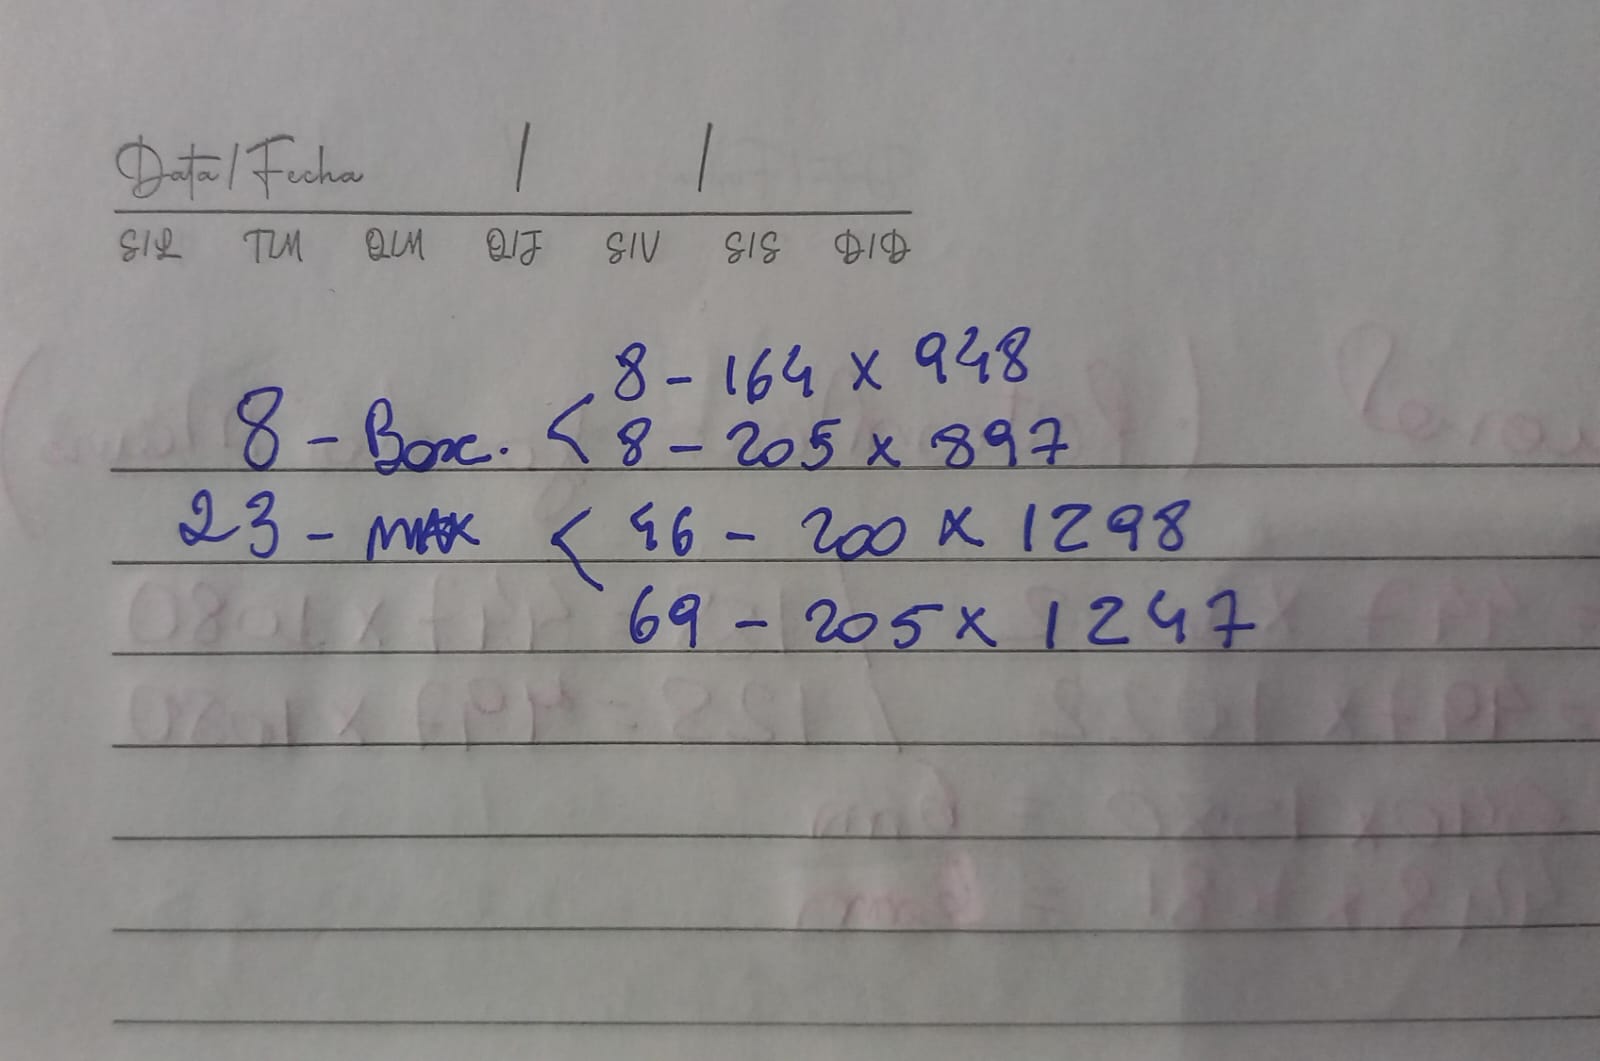 Data/Fecha / /
S/L T/M Q/M Q/J S/V S/S D/D
8 - 164 x 948
8 - Box. < 8 - 205 x 897
23 - MAX < 46 - 200 x 1298
69 - 205 x 1247